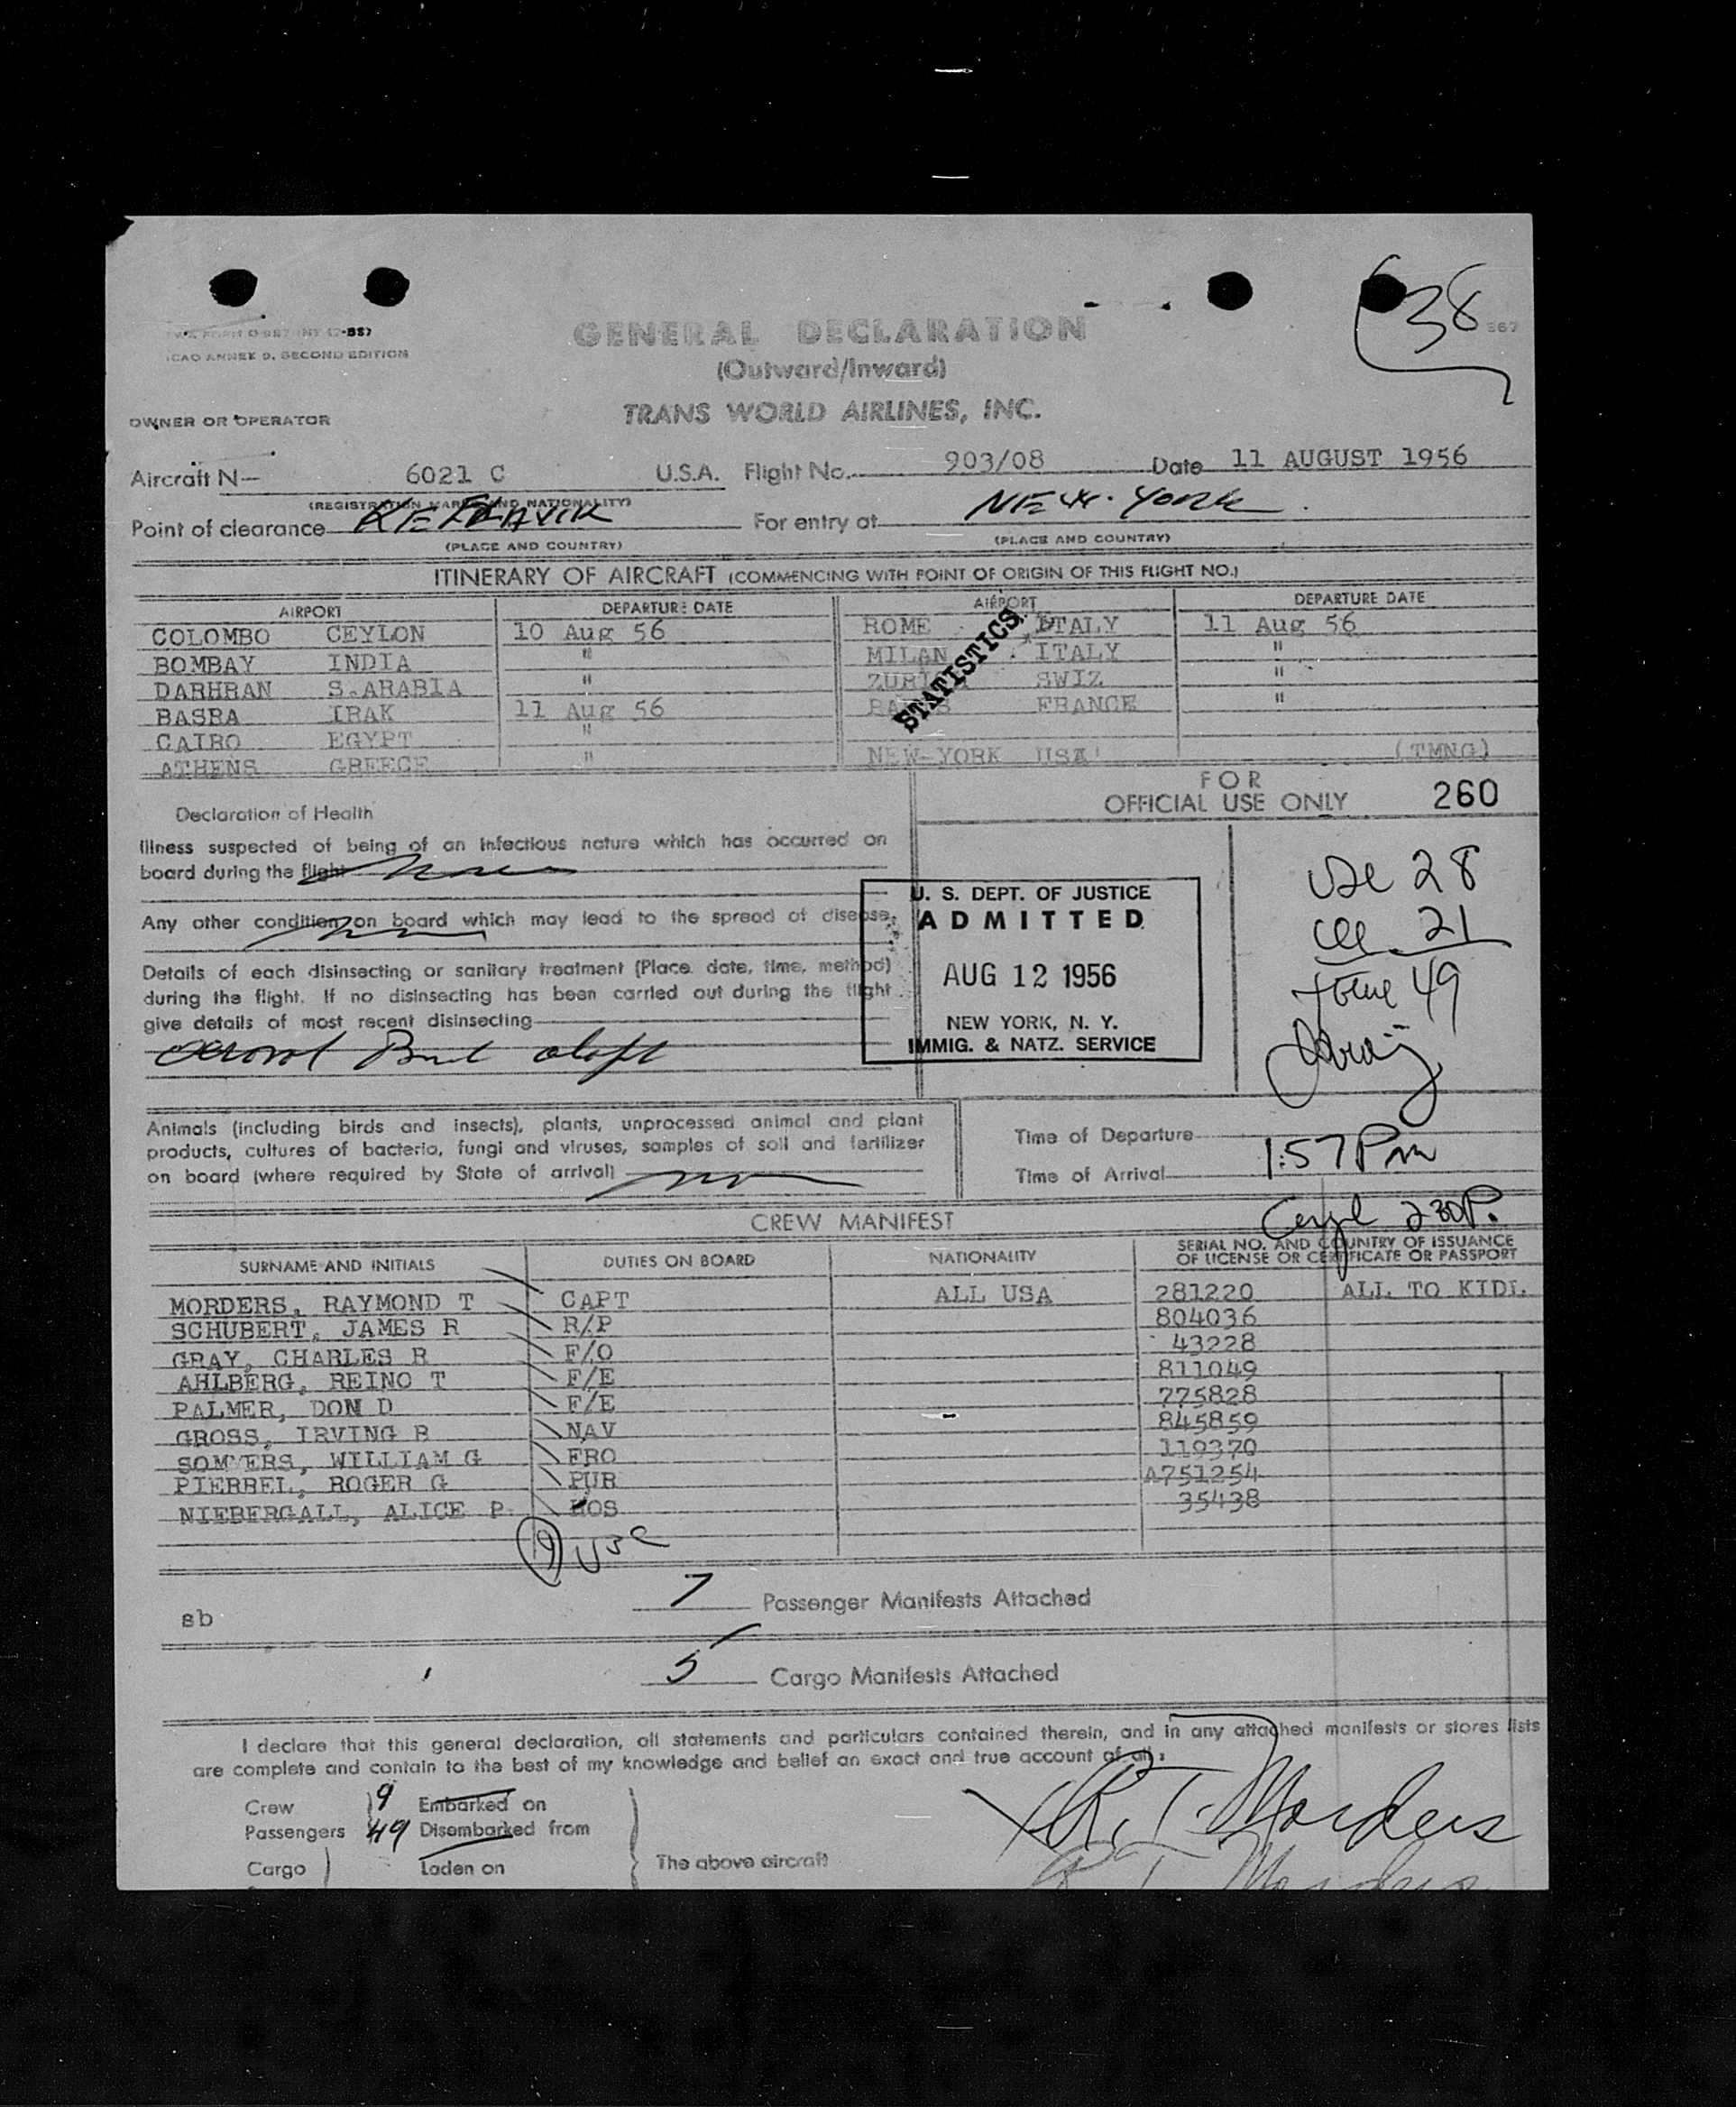 38
ICAO ANNEX 9, SECOND EDITION
GENERAL DECLARATION
(Outward/Inward)
OWNER OR OPERATOR
TRANS WORLD AIRLINES, INC.
Aircraft N— 6021 C U.S.A. Flight No. 903/08 Date 11 AUGUST 1956
(REGISTRATION MARKS AND NATIONALITY)
Point of clearance KEFLAVIK For entry at NEW YORK
(PLACE AND COUNTRY) (PLACE AND COUNTRY)
ITINERARY OF AIRCRAFT (COMMENCING WITH POINT OF ORIGIN OF THIS FLIGHT NO.)
AIRPORT DEPARTURE DATE AIRPORT DEPARTURE DATE
COLOMBO CEYLON 10 Aug 56 ROME ITALY 11 Aug 56
BOMBAY INDIA " MILAN ITALY "
DARHRAN S.ARABIA " ZURICH SWIZ "
BASRA IRAK 11 Aug 56 PARIS FRANCE "
CAIRO EGYPT "
ATHENS GREECE " NEW-YORK USA (TMNG)
STATISTICS
FOR
OFFICIAL USE ONLY 260
Declaration of Health
Illness suspected of being of an infectious nature which has occurred on
board during the flight none
Any other condition on board which may lead to the spread of disease
Details of each disinsecting or sanitary treatment (Place, date, time, method)
during the flight. If no disinsecting has been carried out during the flight
give details of most recent disinsecting
U. S. DEPT. OF JUSTICE
ADMITTED
AUG 12 1956
NEW YORK, N. Y.
IMMIG. & NATZ. SERVICE
28
21
49
Animals (including birds and insects), plants, unprocessed animal and plant
products, cultures of bacteria, fungi and viruses, samples of soil and fertilizer
on board (where required by State of arrival)
Time of Departure
Time of Arrival 1:57 Pm
230P.
CREW MANIFEST
SURNAME AND INITIALS DUTIES ON BOARD NATIONALITY SERIAL NO. AND COUNTRY OF ISSUANCE
OF LICENSE OR CERTIFICATE OR PASSPORT
MORDERS, RAYMOND T CAPT ALL USA 281220 ALL TO KIDL
SCHUBERT, JAMES R R/P 804036
GRAY, CHARLES R F/O 43228
AHLBERG, REINO T F/E 811049
PALMER, DON D F/E 775828
GROSS, IRVING B NAV 845859
SOMMERS, WILLIAM G FRO 119370
PIERREL, ROGER G PUR A751254
NIEBERGALL, ALICE P HOS 35438
9 USC
7 Passenger Manifests Attached
sb
5 Cargo Manifests Attached
I declare that this general declaration, all statements and particulars contained therein, and in any attached manifests or stores lists
are complete and contain to the best of my knowledge and belief an exact and true account of all:
Crew 9 Embarked on
Passengers 49 Disembarked from
Cargo Laden on The above aircraft
R. T. Morders
R T Morders